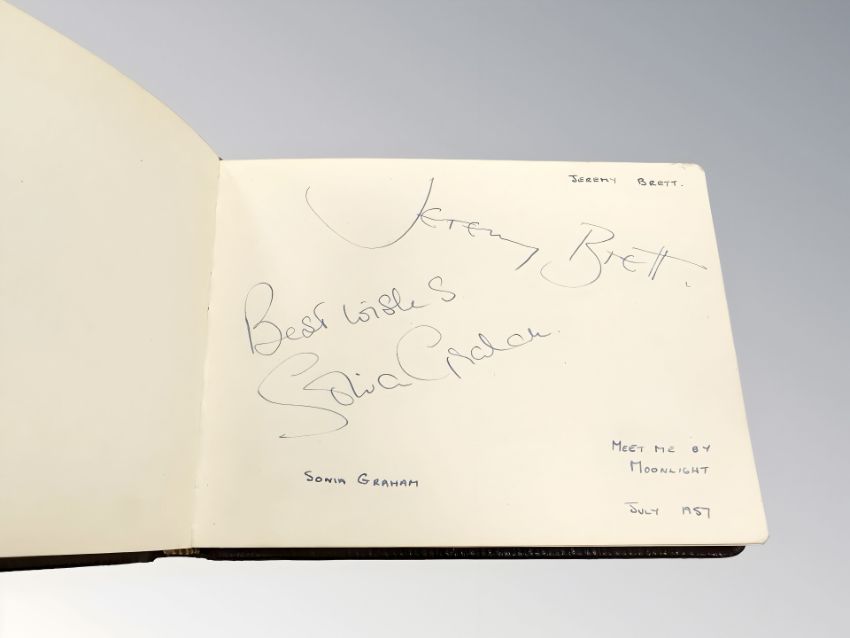 JEREMY BRETT.
Jeremy Brett.
Best wishes
Sonia Graham.
SONIA GRAHAM
MEET ME BY
MOONLIGHT
JULY 1957